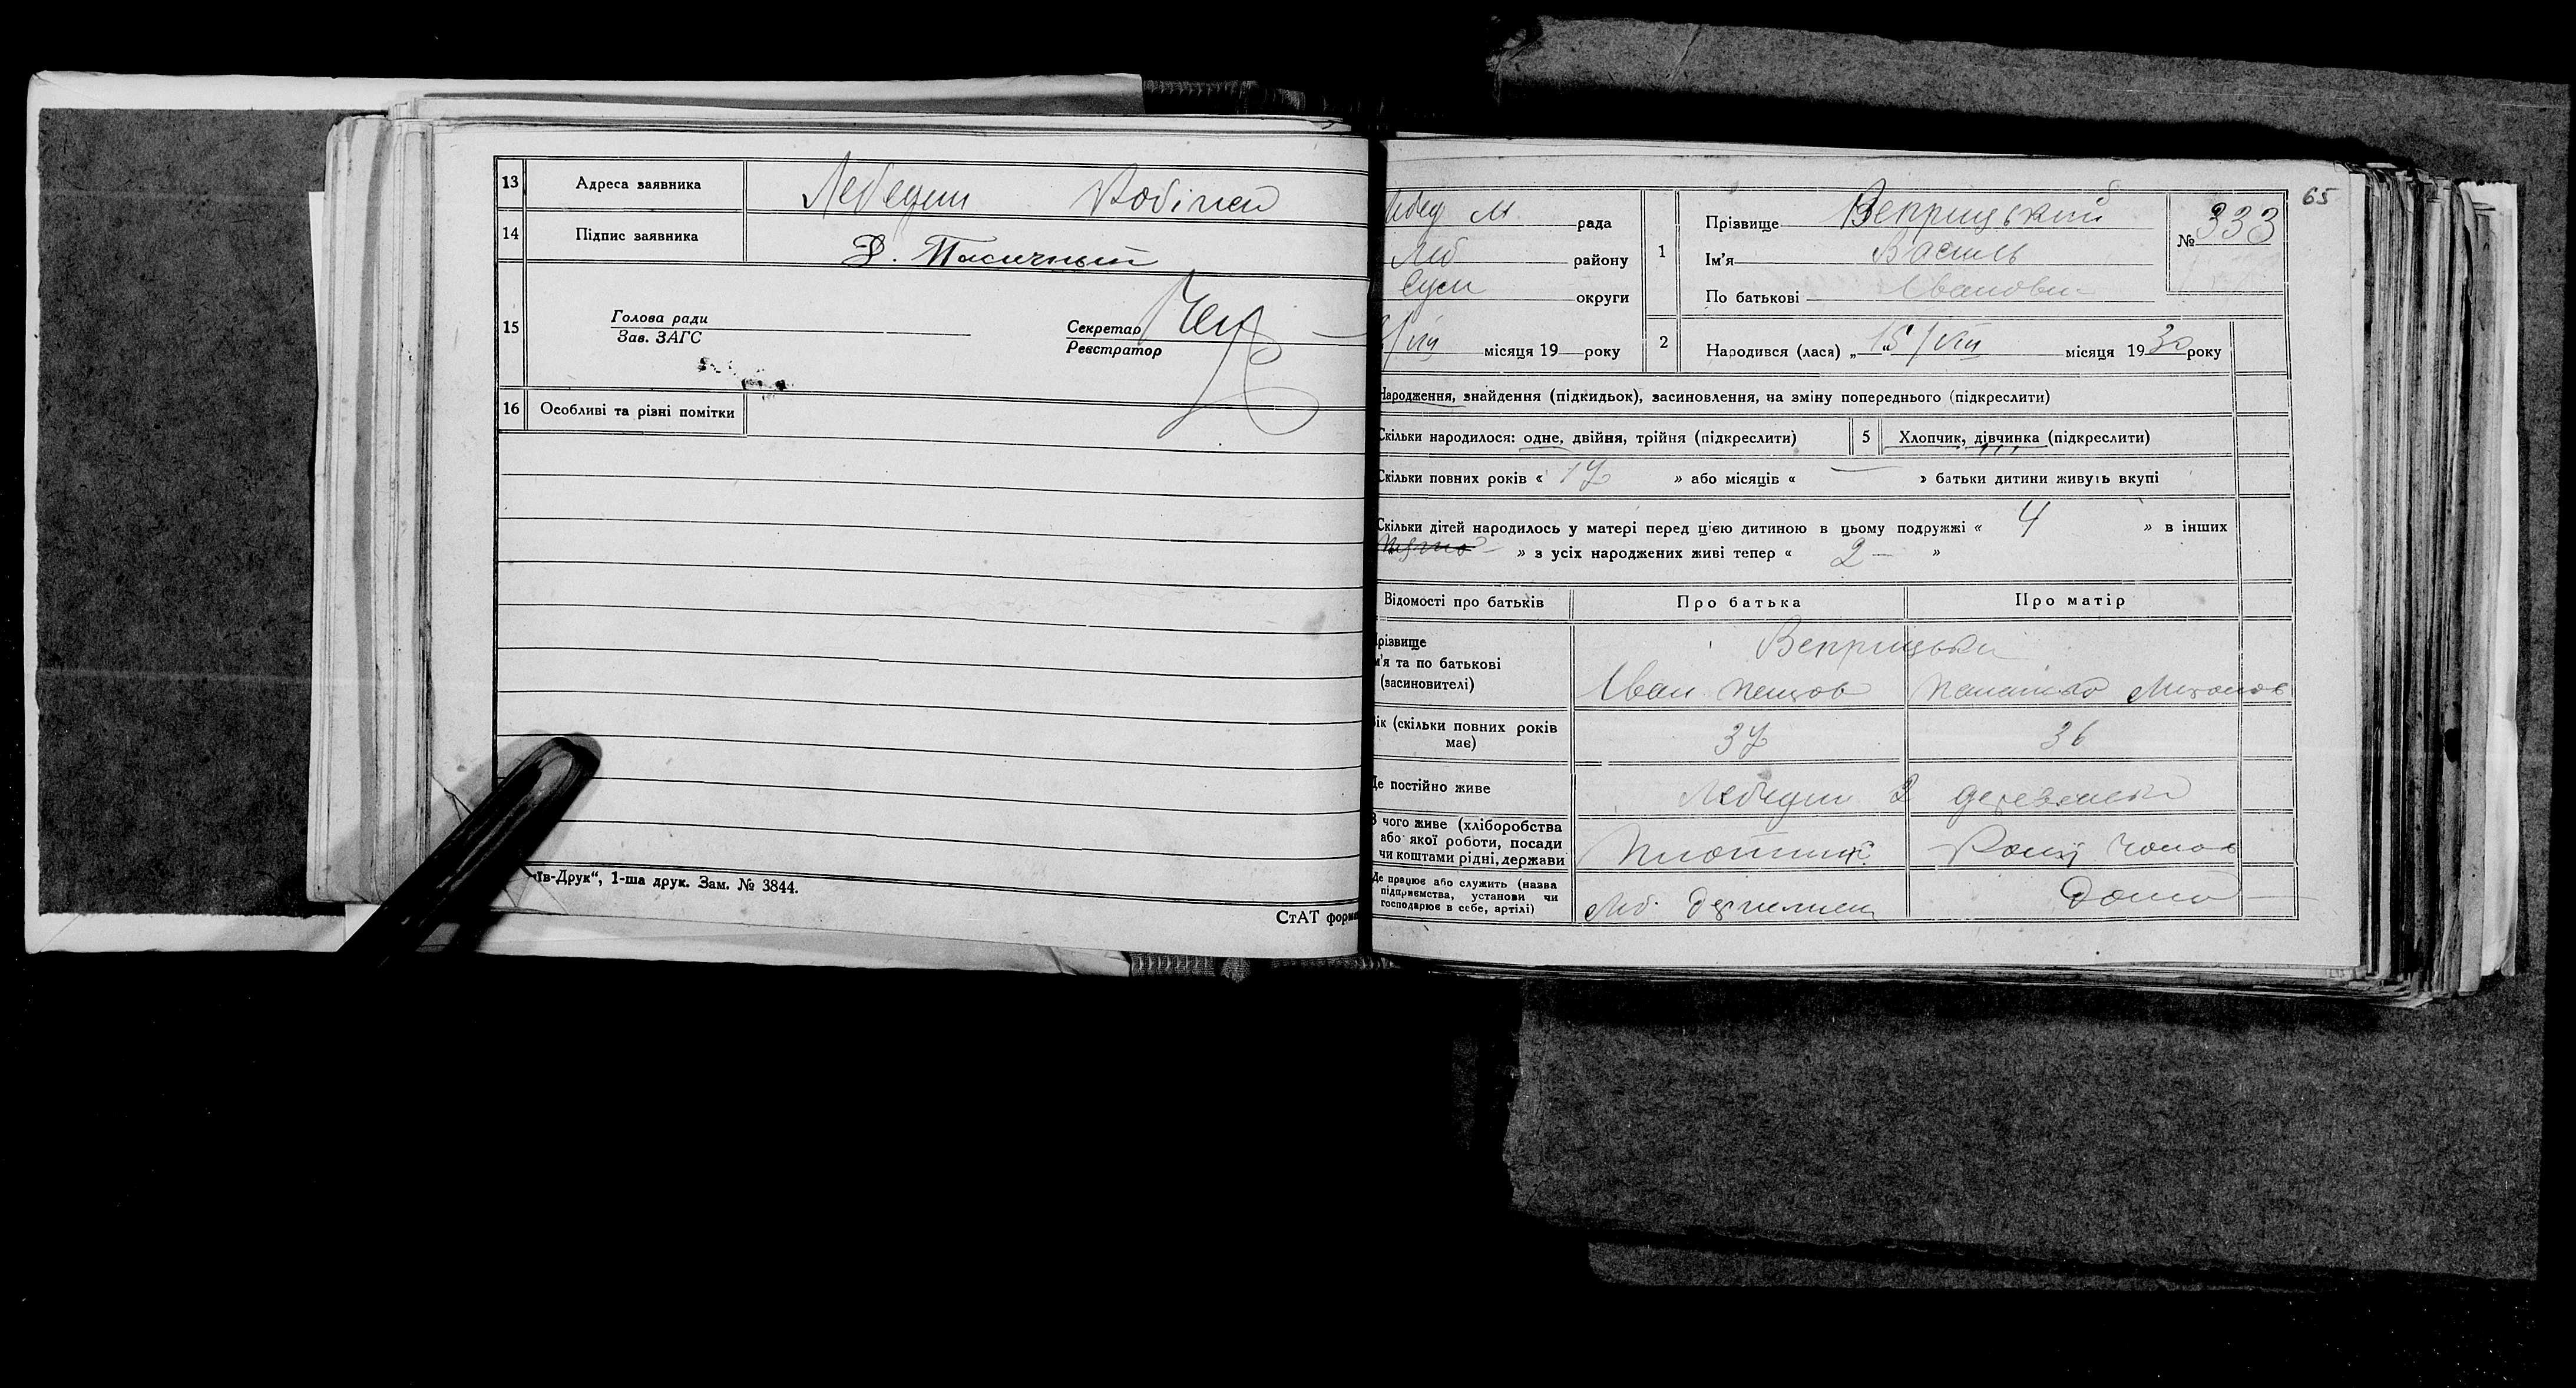 13 Адреса заявника Лебедин
14 Підпис заявника
15 Голова ради
Зав. ЗАГС
Секретар
Реєстратор
16 Особливі та різні помітки
їв-Друк“, 1-ша друк. Зам. № 3844.
СтАТ форма
65
М рада
Леб району
Сум округи
/VIII місяця 19 року
1 Прізвище Веприцький
Ім'я Василь
По батькові Іванович
№ 333
2 Народився (лася) „ 15/VIII місяця 1930 року
Народження, знайдення (підкидьок), засиновлення, на зміну попереднього (підкреслити)
Скільки народилося: одне, двійня, трійня (підкреслити) 5 Хлопчик, дівчинка (підкреслити)
Скільки повних років « 17 » або місяців « — » батьки дитини живуть вкупі
Скільки дітей народилось у матері перед цією дитиною в цьому подружжі « 4 » в інших
» з усіх народжених живі тепер « 2 — »
Відомості про батьків Про батька Про матір
різвище Веприцьки
м'я та по батькові
(засиновителі) Іван
ік (скільки повних років має) 37 36
Де постійно живе Лебедин 2
З чого живе (хліборобства
або якої роботи, посади
чи коштами рідні, держави
Де працює або служить (назва
підприємства, установи чи
господарює в себе, артілі) Леб. Дома